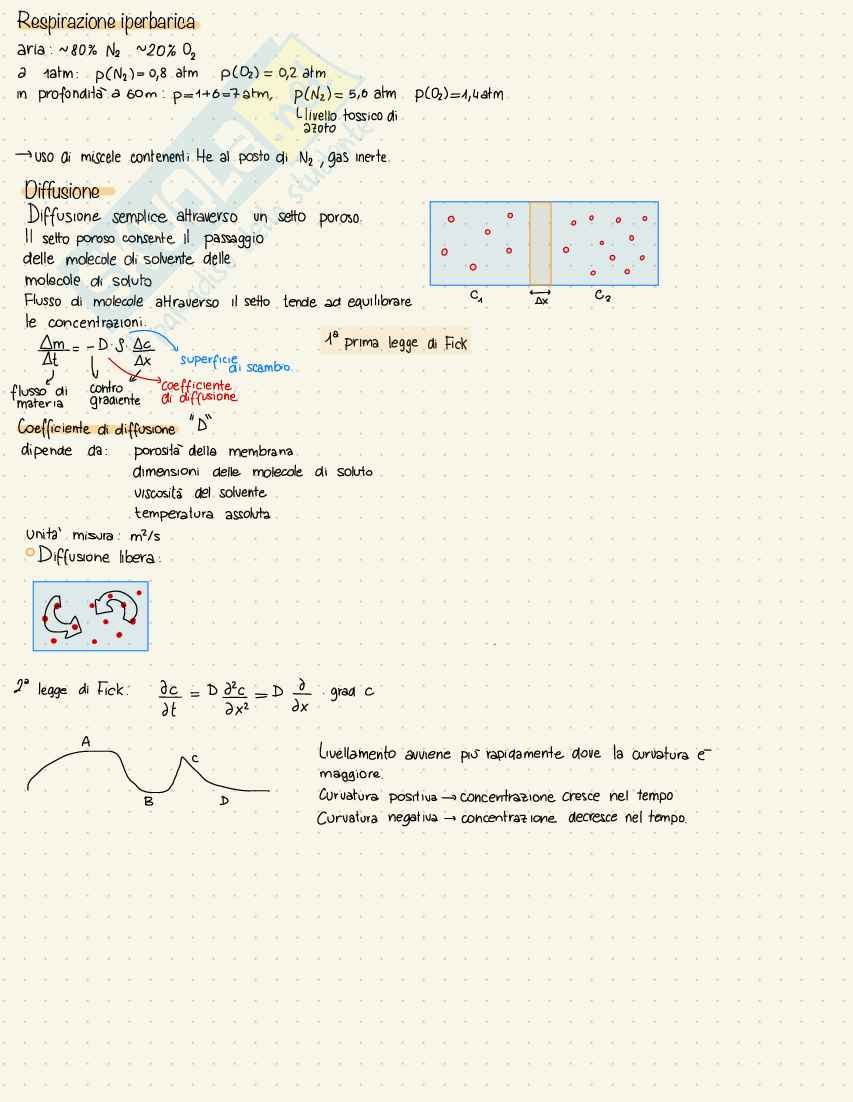 Respirazione iperbarica
aria: ~80% N₂ ~20% O₂
a 1atm: p(N₂)=0,8 atm p(O₂)=0,2 atm
in profondità a 60m: p=1+6=7atm, p(N₂)=5,6 atm p(O₂)=1,4atm
livello tossico di
azoto
→ uso di miscele contenenti He al posto di N₂, gas inerte.
Diffusione
Diffusione semplice attraverso un setto poroso.
Il setto poroso consente il passaggio
delle molecole di solvente delle
molecole di soluto
Flusso di molecole attraverso il setto tende ad equilibrare
le concentrazioni.
C₁ Δx C₂
Δm/Δt = -D·S·Δc/Δx
1ª prima legge di Fick
superficie
di scambio.
flusso di
materia
contro
gradiente
coefficiente
di diffusione
Coefficiente di diffusione "D"
dipende da: porosità della membrana
dimensioni delle molecole di soluto
viscosità del solvente
temperatura assoluta
unità misura: m²/s
Diffusione libera:
2ª legge di Fick: ∂c/∂t = D ∂²c/∂x² = D ∂/∂x · grad c
A
C
B
D
Livellamento avviene più rapidamente dove la curvatura è
maggiore.
Curvatura positiva → concentrazione cresce nel tempo
Curvatura negativa → concentrazione decresce nel tempo.